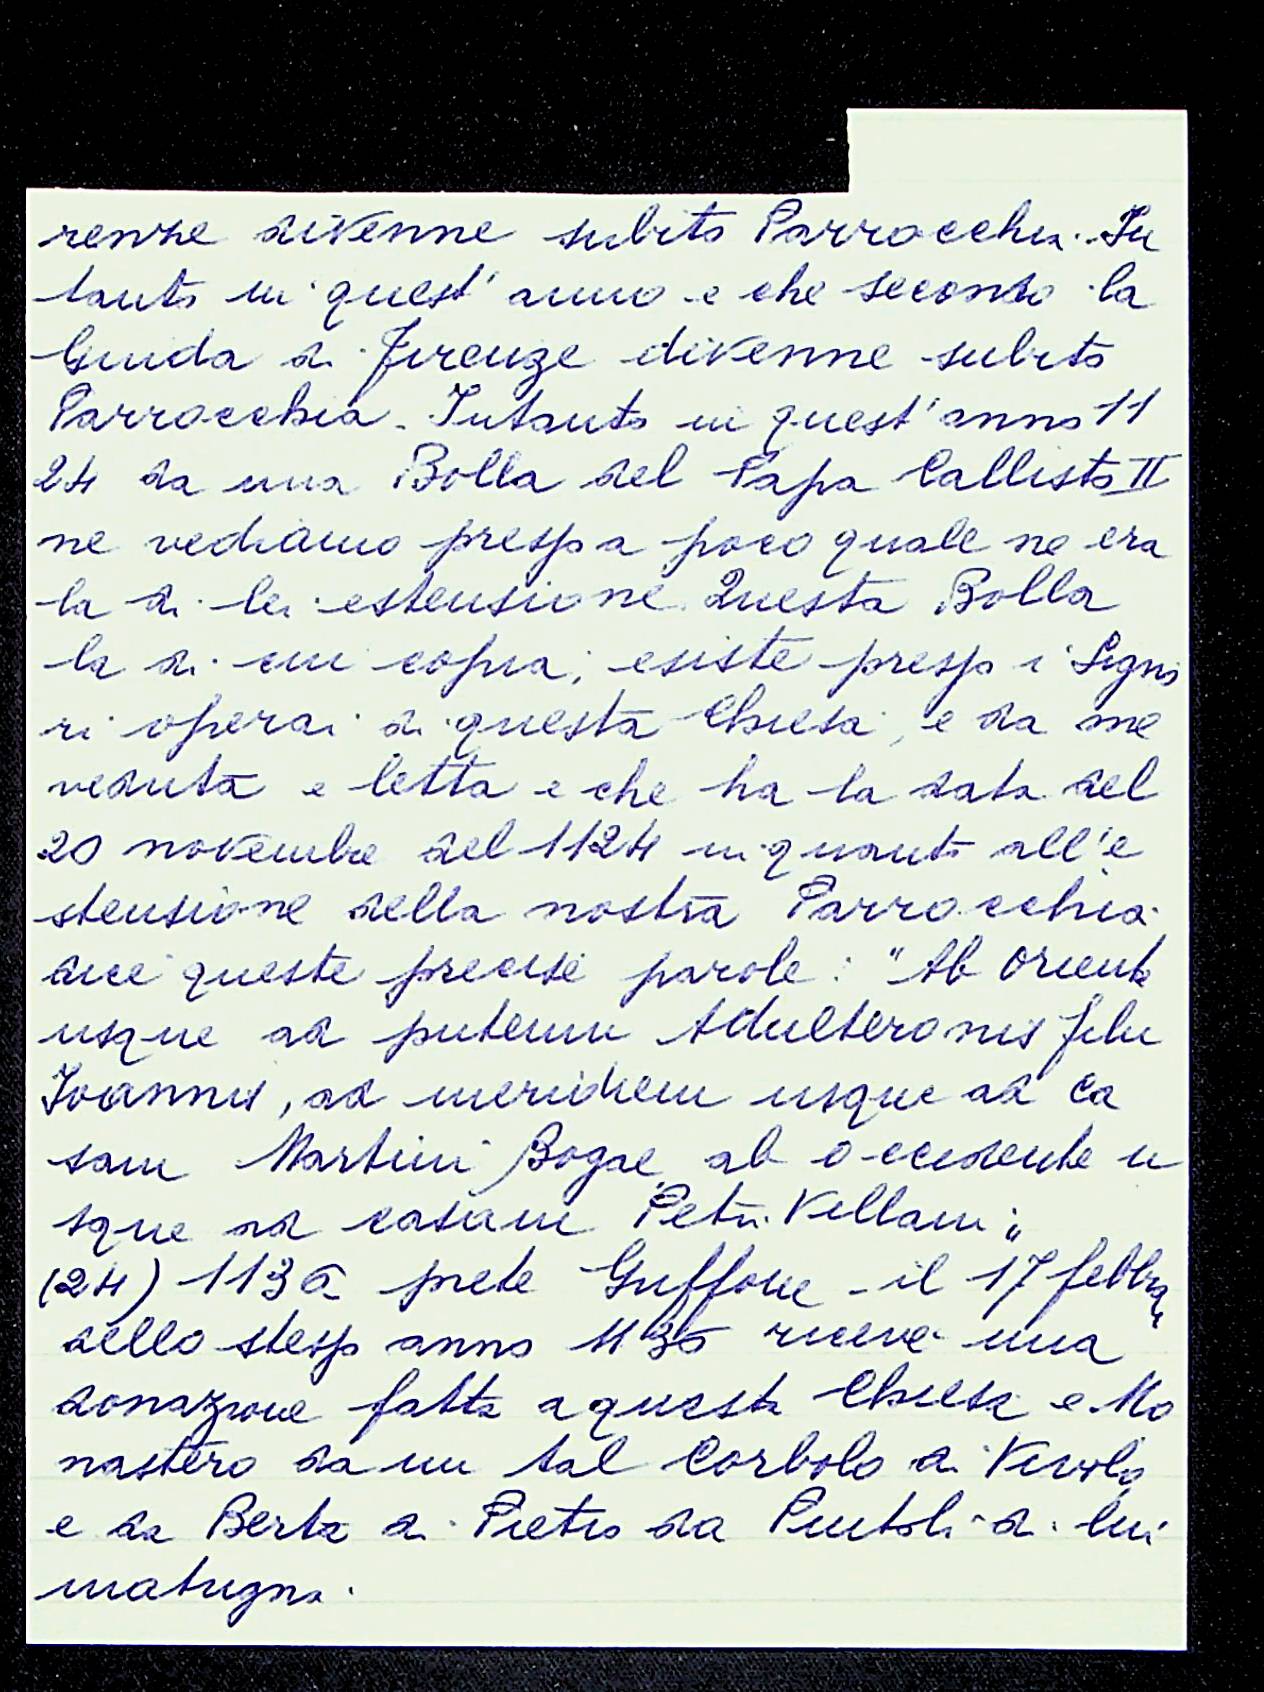 renze divenne subito Parrocchia. In
tanto in quest'anno e che secondo la
Guida di Firenze divenne subito
Parrocchia. Intanto in quest'anno 11
24 da una Bolla del Papa Callisto II
ne vediamo presso a poco quale ne era
la di lei estensione. Questa Bolla
la di cui copia, esiste presso i Signo
ri operai di questa Chiesa, e da me
veduta e letta e che ha la data del
20 novembre del 1124 in quanto all'e
stensione della nostra Parrocchia
dice queste precise parole: "Ab oriente
usque ad puteum Adulteronis filii
Joannis, ad meridiem usque ad ca
sam Martini Bogae, ab occidente u
sque ad casam Petri Villani"
(24) 1136 prete Guffone - il 17 febbra
dello stesso anno 1136 riceve una
donazione fatta a questa Chiesa e Mo
nastero da un tal Corbolo di
e da Berta di Pietro da Puntoli di lui
matrigna.